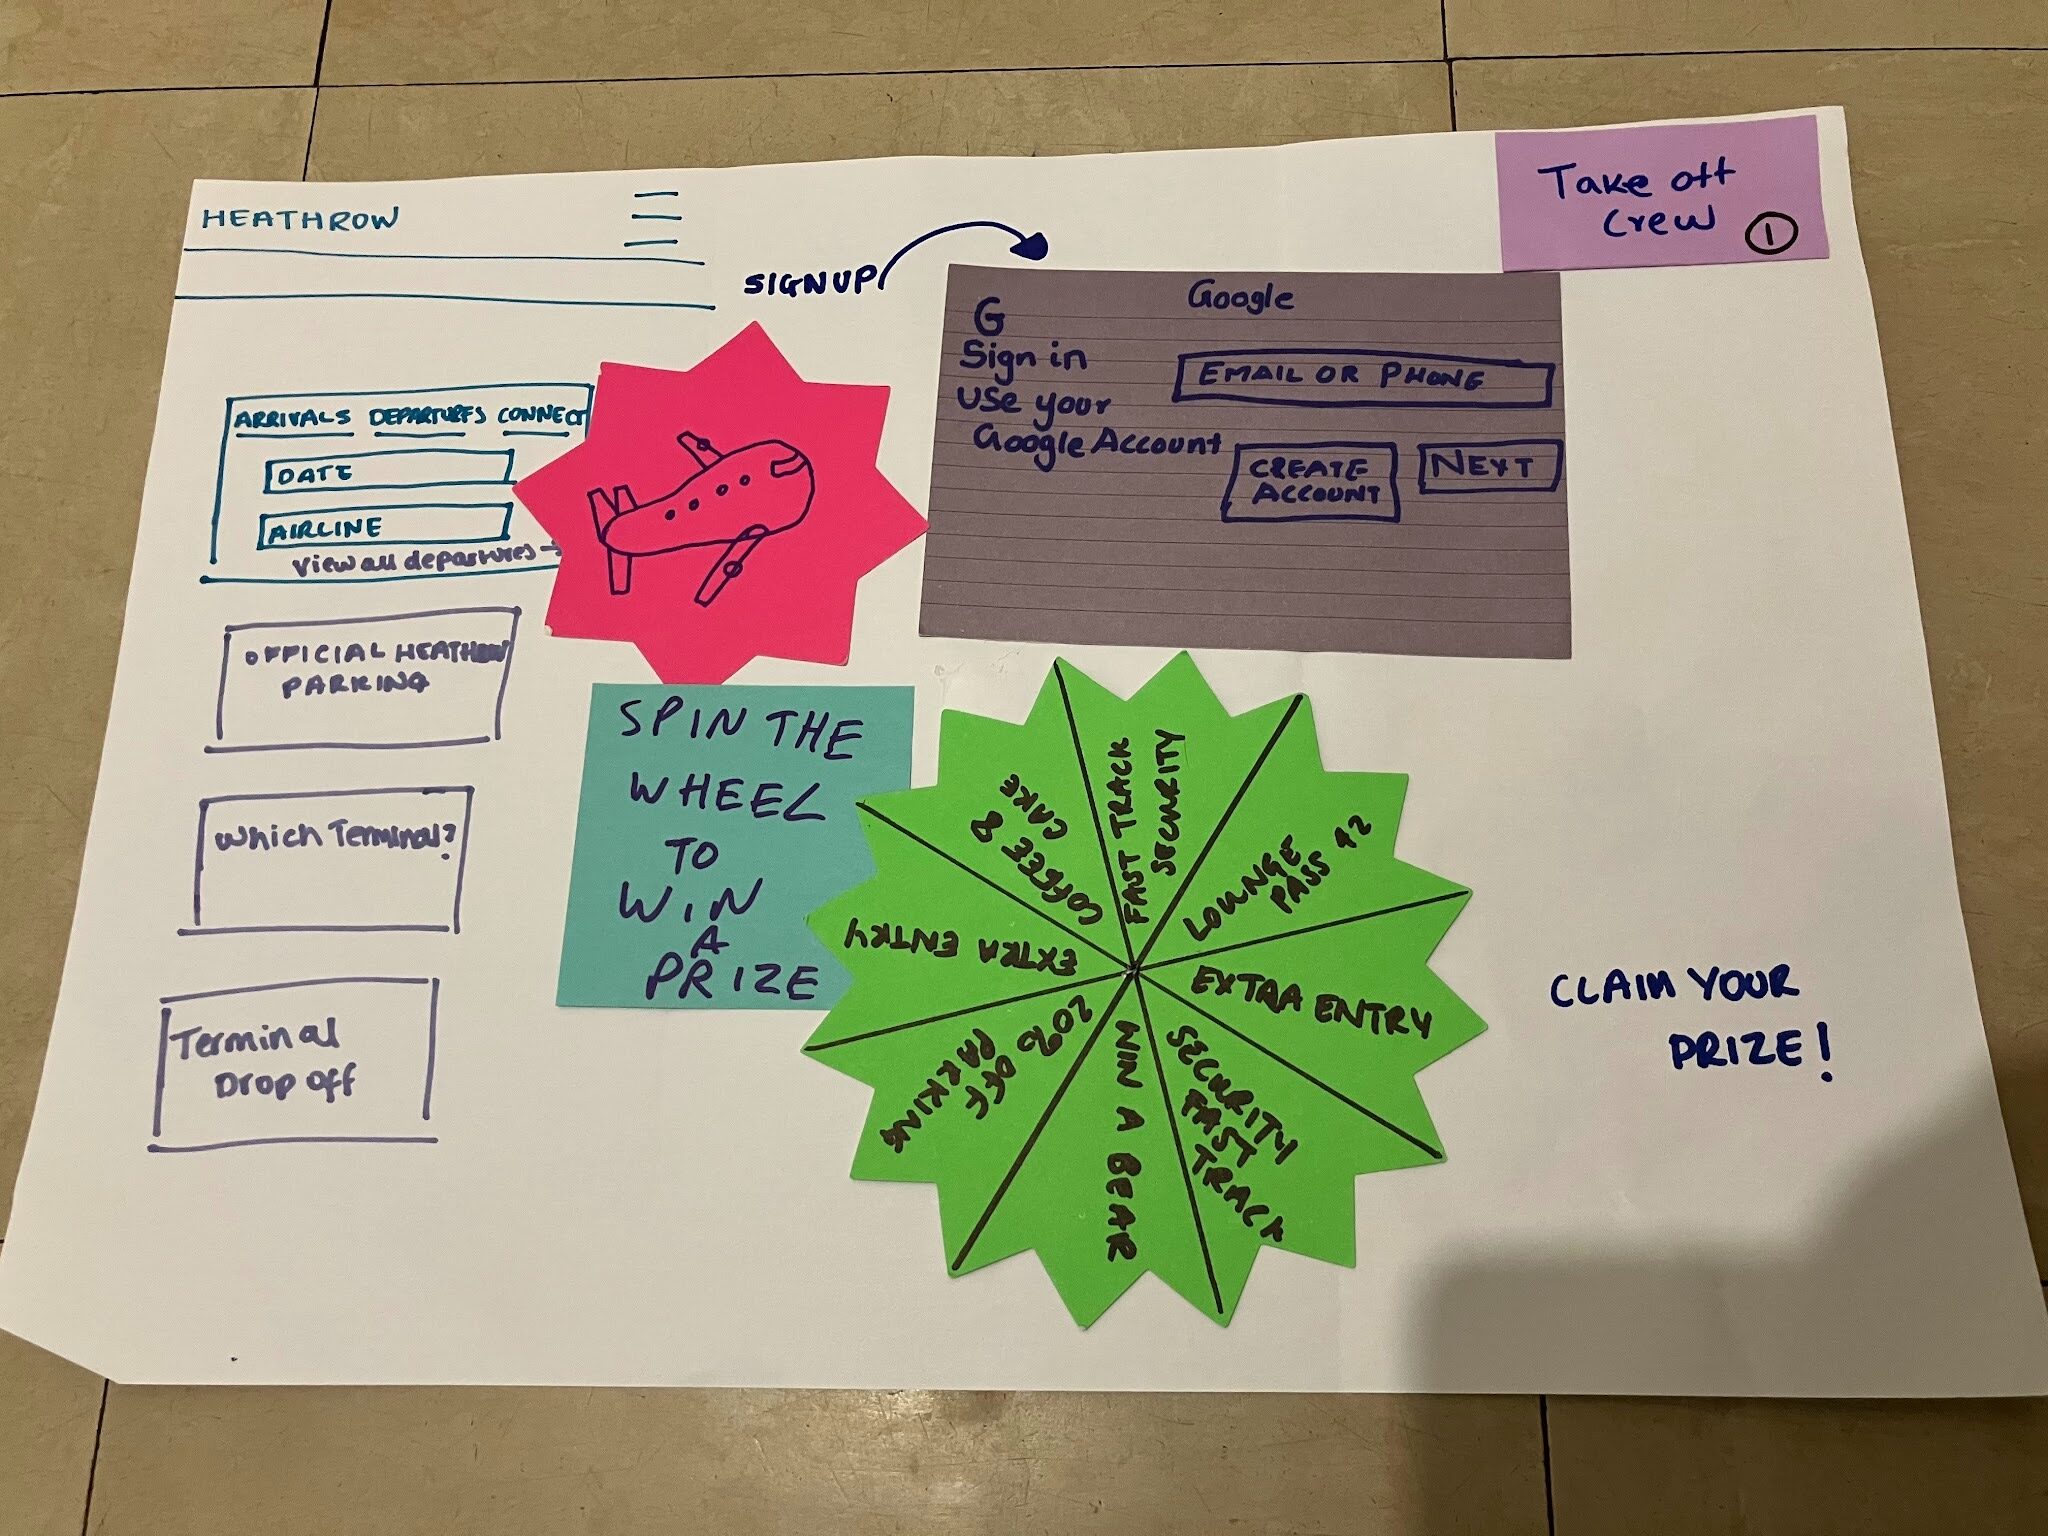 HEATHROW
SIGNUP
Take off
Crew
1
ARRIVALS DEPARTURES CONNECT
DATE
AIRLINE
View all departures →
OFFICIAL HEATHROW
PARKING
Which Terminal?
Terminal
Drop off
Google
G
Sign in
Use your
Google Account
EMAIL OR PHONE
CREATE
ACCOUNT
NEXT
SPIN THE
WHEEL
TO
WIN
A
PRIZE
FAST TRACK
SECURITY
LOUNGE
PASS 42
EXTRA ENTRY
SECURITY
FAST
TRACK
WIN A BEAR
20%
OFF
PARKING
EXTRA ENTRY
COFFEE &
CAKE
CLAIM YOUR
PRIZE!